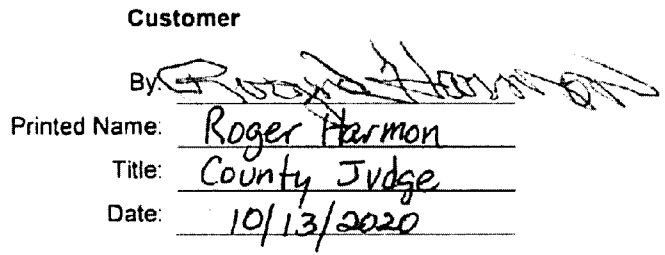 Customer
By: Roger Harmon
Printed Name: Roger Harmon
Title: County Judge
Date: 10/13/2020